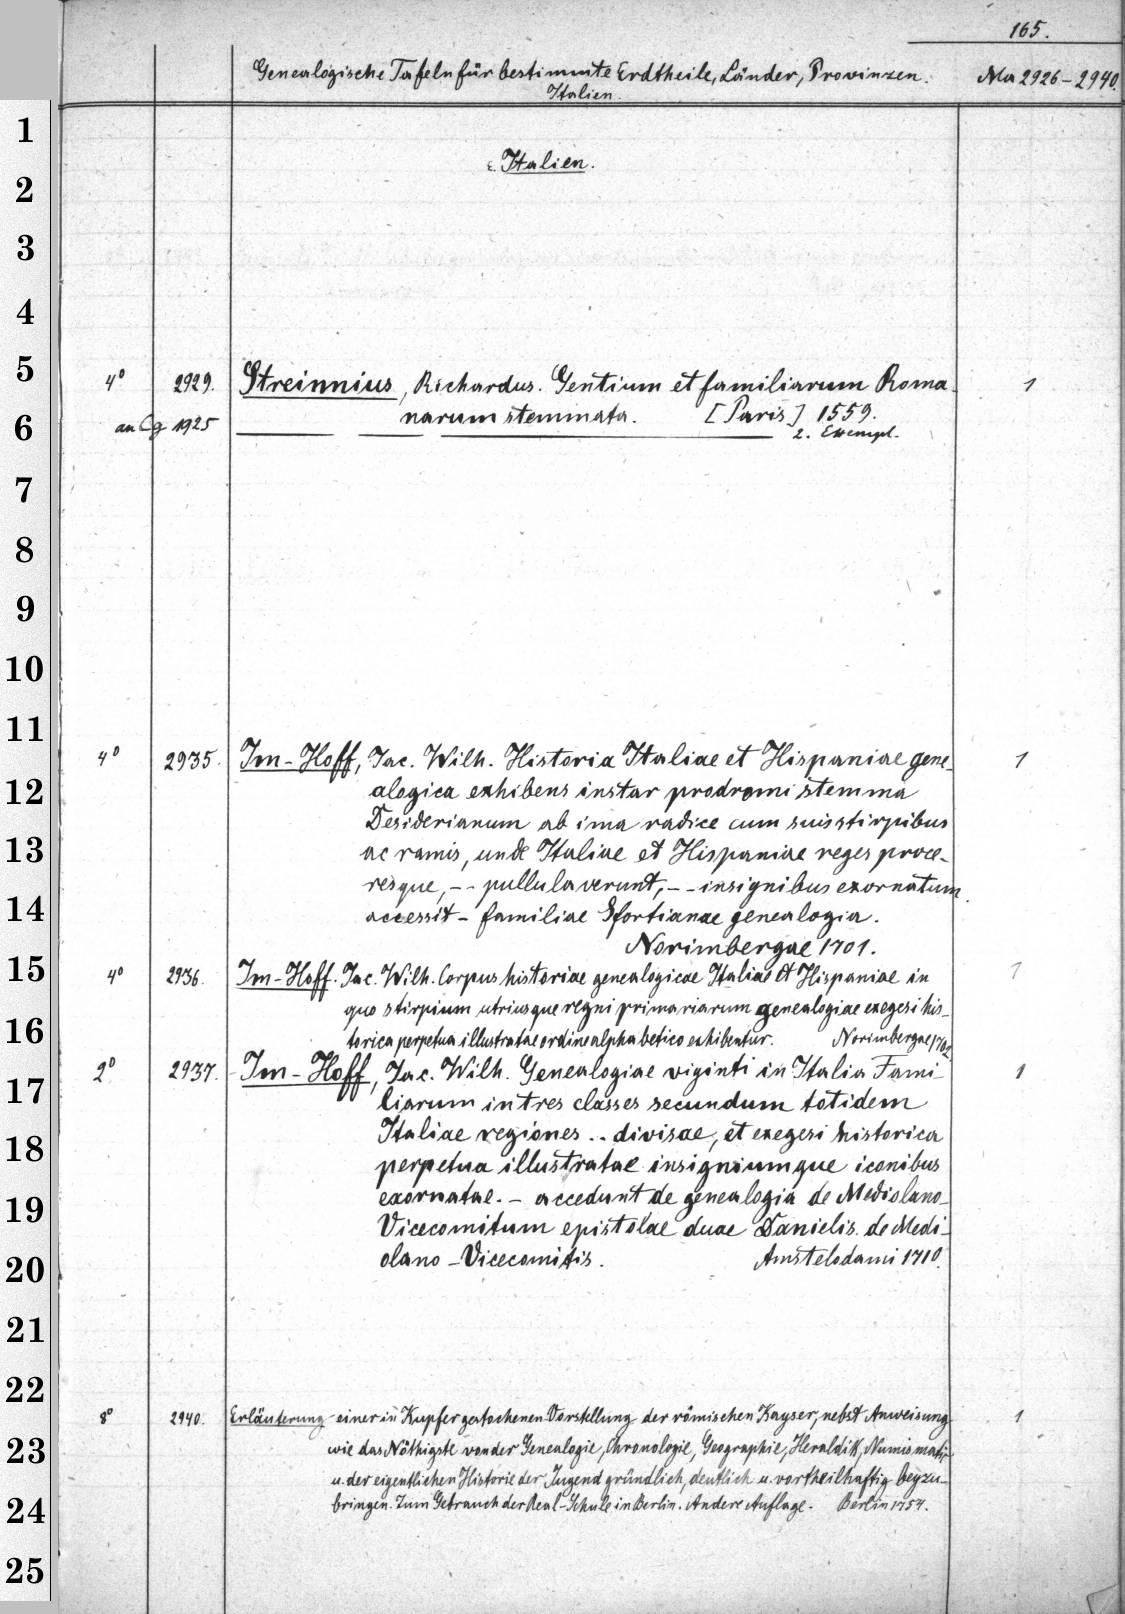 165.
Genealogische Tafeln für bestimmte Erdtheile, Länder, Provinzen. Ma 2926-2940.
Italien.
1
ε. Italien.
2
3
4
5
4° 2929. Streinnius, Richardus. Gentium et familiarum Roma- 1
narum stemmata. [Paris] 1559.
6
an Cg 1925 2. Exempl.
7
8
9
10
11
4° 2935. Im-Hoff, Jac. Wilh. Historia Italiae et Hispaniae gene- 1
12
alogica exhibens instar prodromi stemma
Desiderianum ab ima radice cum suis stirpibus
13
ac ramis, unde Italiae et Hispaniae reges proce-
resque, -- pullulaverunt, -- insignibus exornatum.
14
accessit - familiae Sfortianae genealogia.
Norimbergae 1701.
15
4° 2936. Im-Hoff. Jac. Wilh. Corpus historiae genealogicae Italiae et Hispaniae in 1
quo stirpium utriusque regni primariarum genealogiae exegesi his-
16
torica perpetua illustratae ordine alphabetico exhibentur. Norimbergae 1702
2° 2937. Im-Hoff, Jac. Wilh. Genealogiae viginti in Italia Fami- 1
17
liarum in tres classes secundum totidem
Italiae regiones .. divisae, et exegesi historica
18
perpetua illustratae insigniumque iconibus
exornatae. - accedunt de genealogia de Mediolano-
19
Vicecomitum epistolae duae Danielis de Medi-
olano-Vicecomitis. Amstelodami 1710.
20
21
22
8° 2940. Erläuterung einer in Kupfer gestochenen Vorstellung der römischen Kayser, nebst Anweisung 1
23
wie das Nöthigste von der Genealogie, Chronologie, Geographie, Heraldik, Numismatic
u. der eigentlichen Historie der Jugend gründlich, deutlich u. vortheilhaftig beyzu-
24
bringen. Zum Gebrauch der Real-Schule in Berlin. Andere Auflage. Berlin 1754.
25